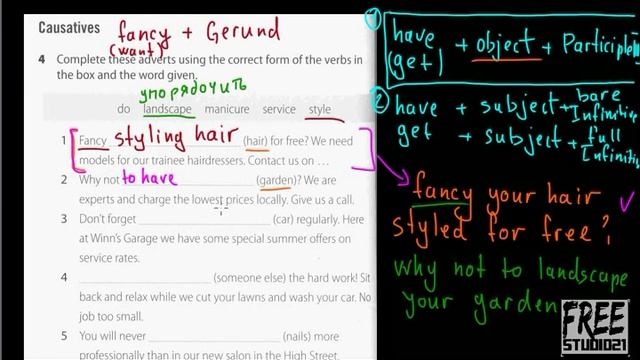 Causatives
fancy + Gerund
(want)
4 Complete these adverts using the correct form of the verbs in
the box and the word given.
упорядочить
do landscape manicure service style
1 Fancy styling hair (hair) for free? We need
models for our trainee hairdressers. Contact us on …
2 Why not to have (garden)? We are
experts and charge the lowest prices locally. Give us a call.
3 Don't forget (car) regularly. Here
at Winn's Garage we have some special summer offers on
service rates.
4 (someone else) the hard work! Sit
back and relax while we cut your lawns and wash your car. No
job too small.
5 You will never (nails) more
professionally than in our new salon in the High Street.
1
have + object + Participle II
(get)
2
have + subject + bare Infinitive
get + subject + full Infinitive
fancy your hair
styled for free?
why not to landscape
your garden
FREE
STUDIO21